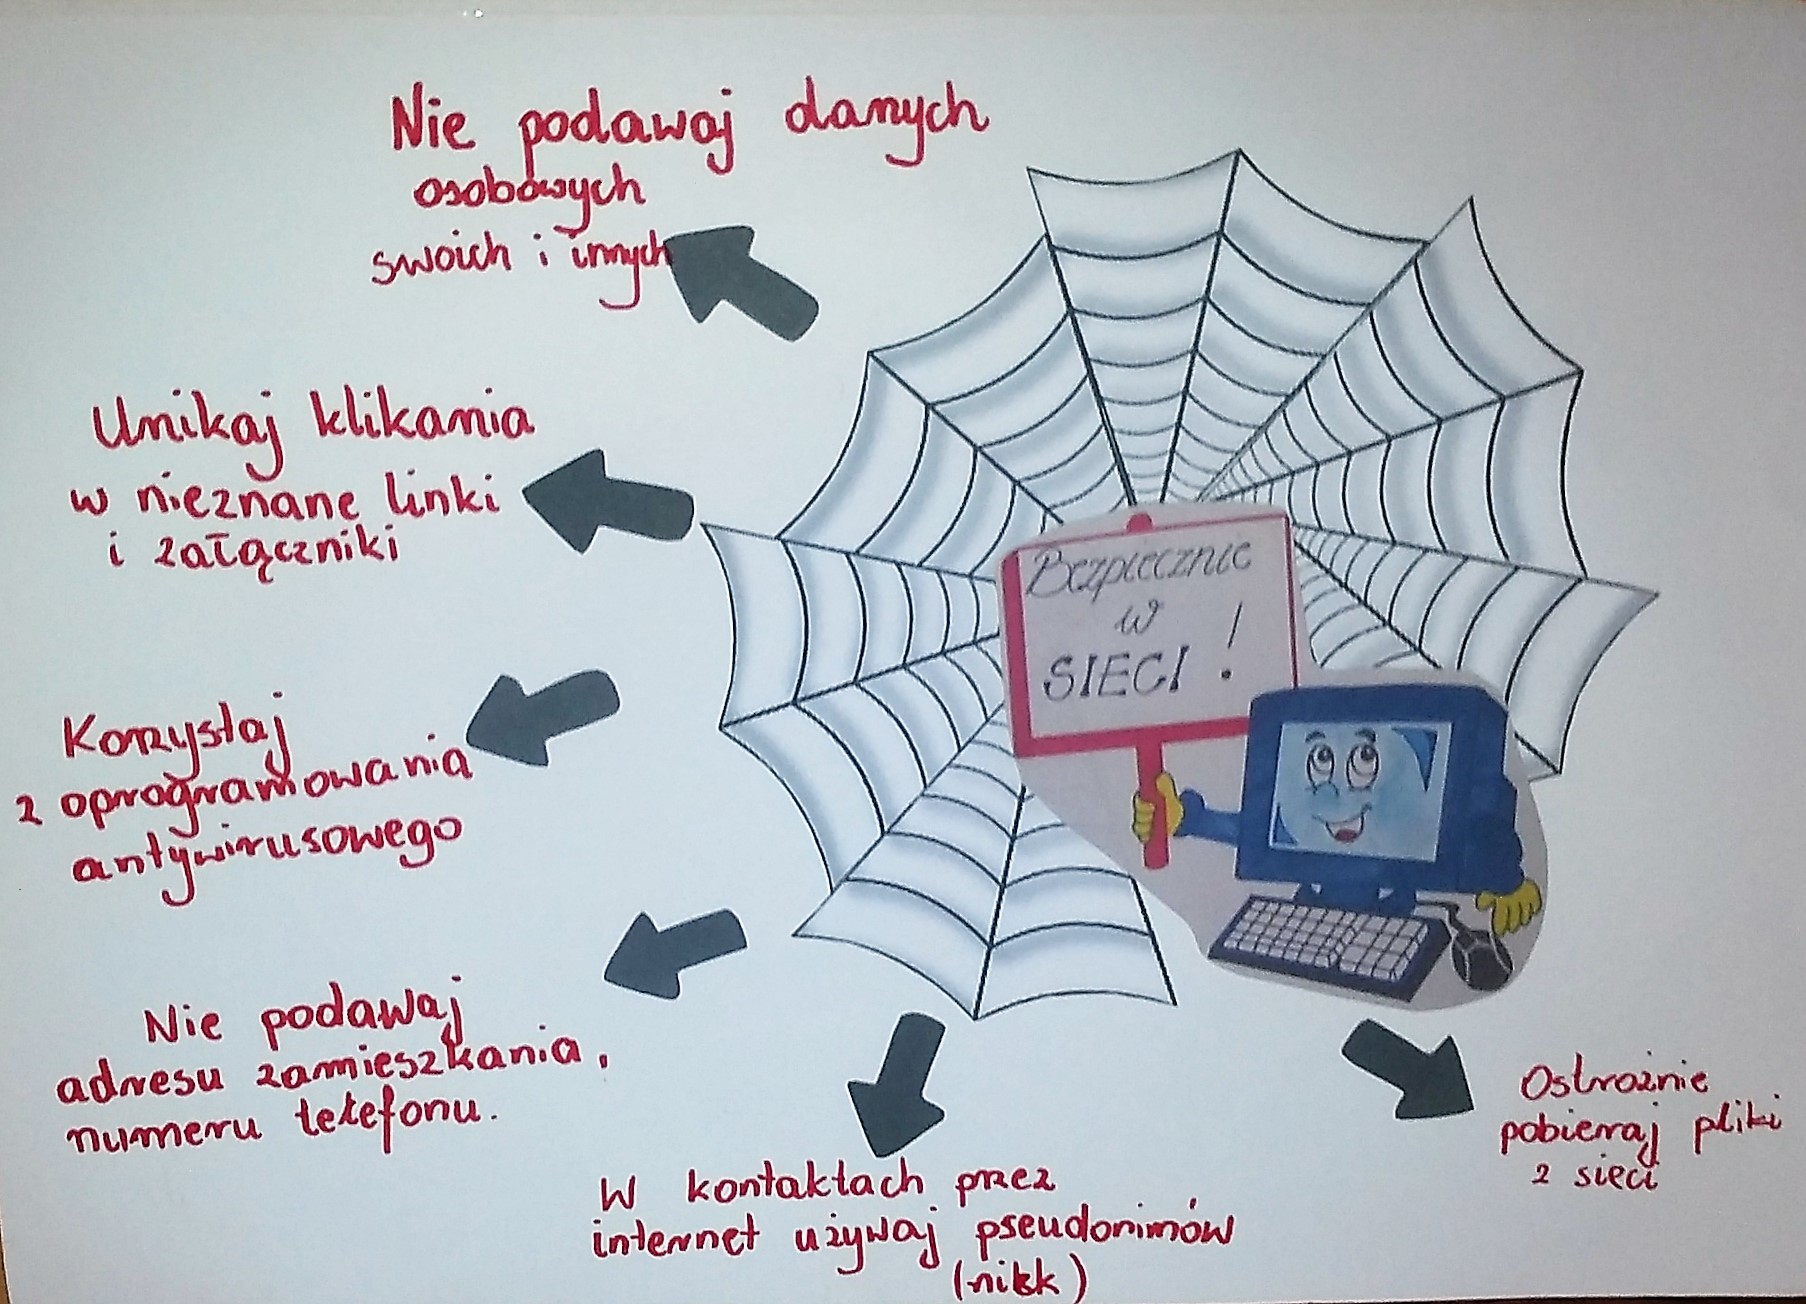 Nie podawaj danych
osobowych
swoich i innych
Unikaj klikania
w nieznane linki
i załączniki
Korzystaj
z oprogramowania
antywirusowego
Nie podawaj
adresu zamieszkania,
numeru telefonu.
W kontaktach przez
internet używaj pseudonimów
(nikk)
Ostrożnie
pobieraj pliki
z sieci
Bezpiecznie
w
SIECI!